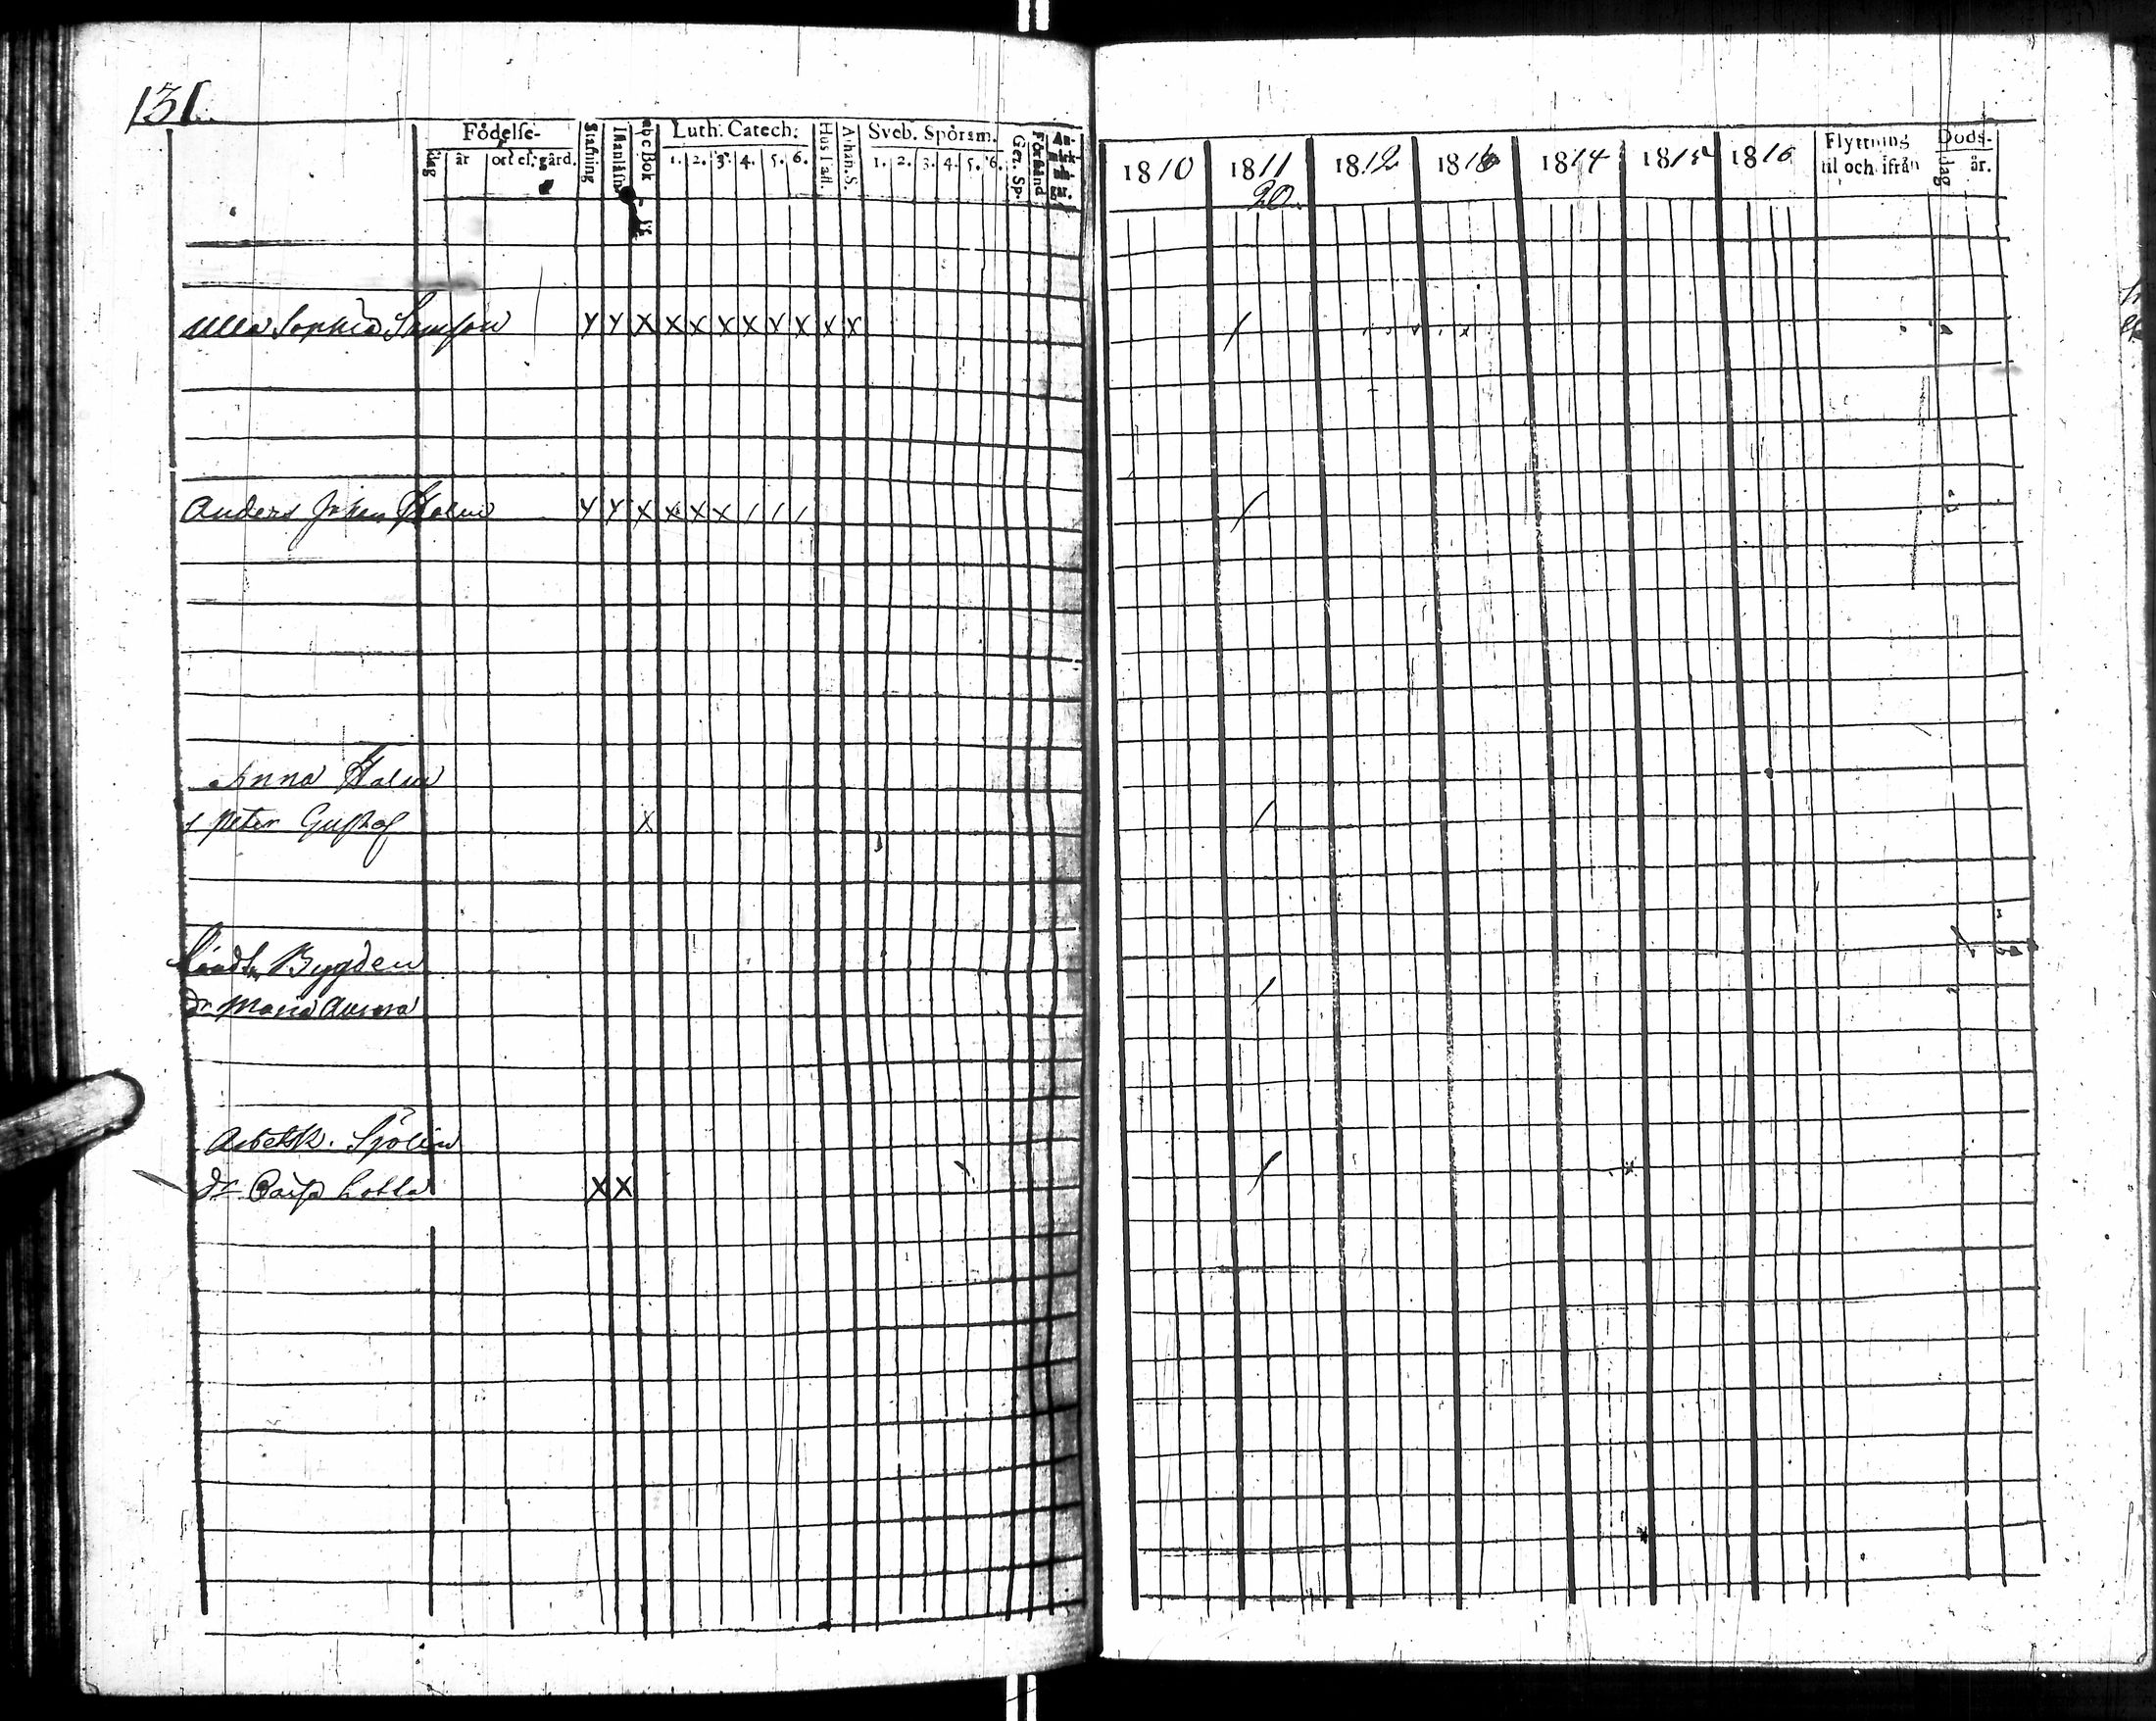 131.
Födelse-
dag år ort el. gård.
Stafning
Innanläsn
abc Bok
Luth. Catech:
1. 2. 3. 4. 5. 6.
Hus Tafl.
Athan. S.
Sveb. Spörsm.
1. 2. 3. 4. 5. 6.
Ger. Sp.
Förstånd
An-
märk-
nin-
gar.
1810 1811 1812 1813 1814 1815 1816
20.
Flyttning
til och ifrån
Döds-
dag år.
Ulla Sophia Y Y X X X X X X X X X
Anders Johan Holm Y Y X X X X / / /
Anna Holm
Peter Gustaf X
Bygden
dr Maria
Arbetsk. Sjölin
dr Lotta X X